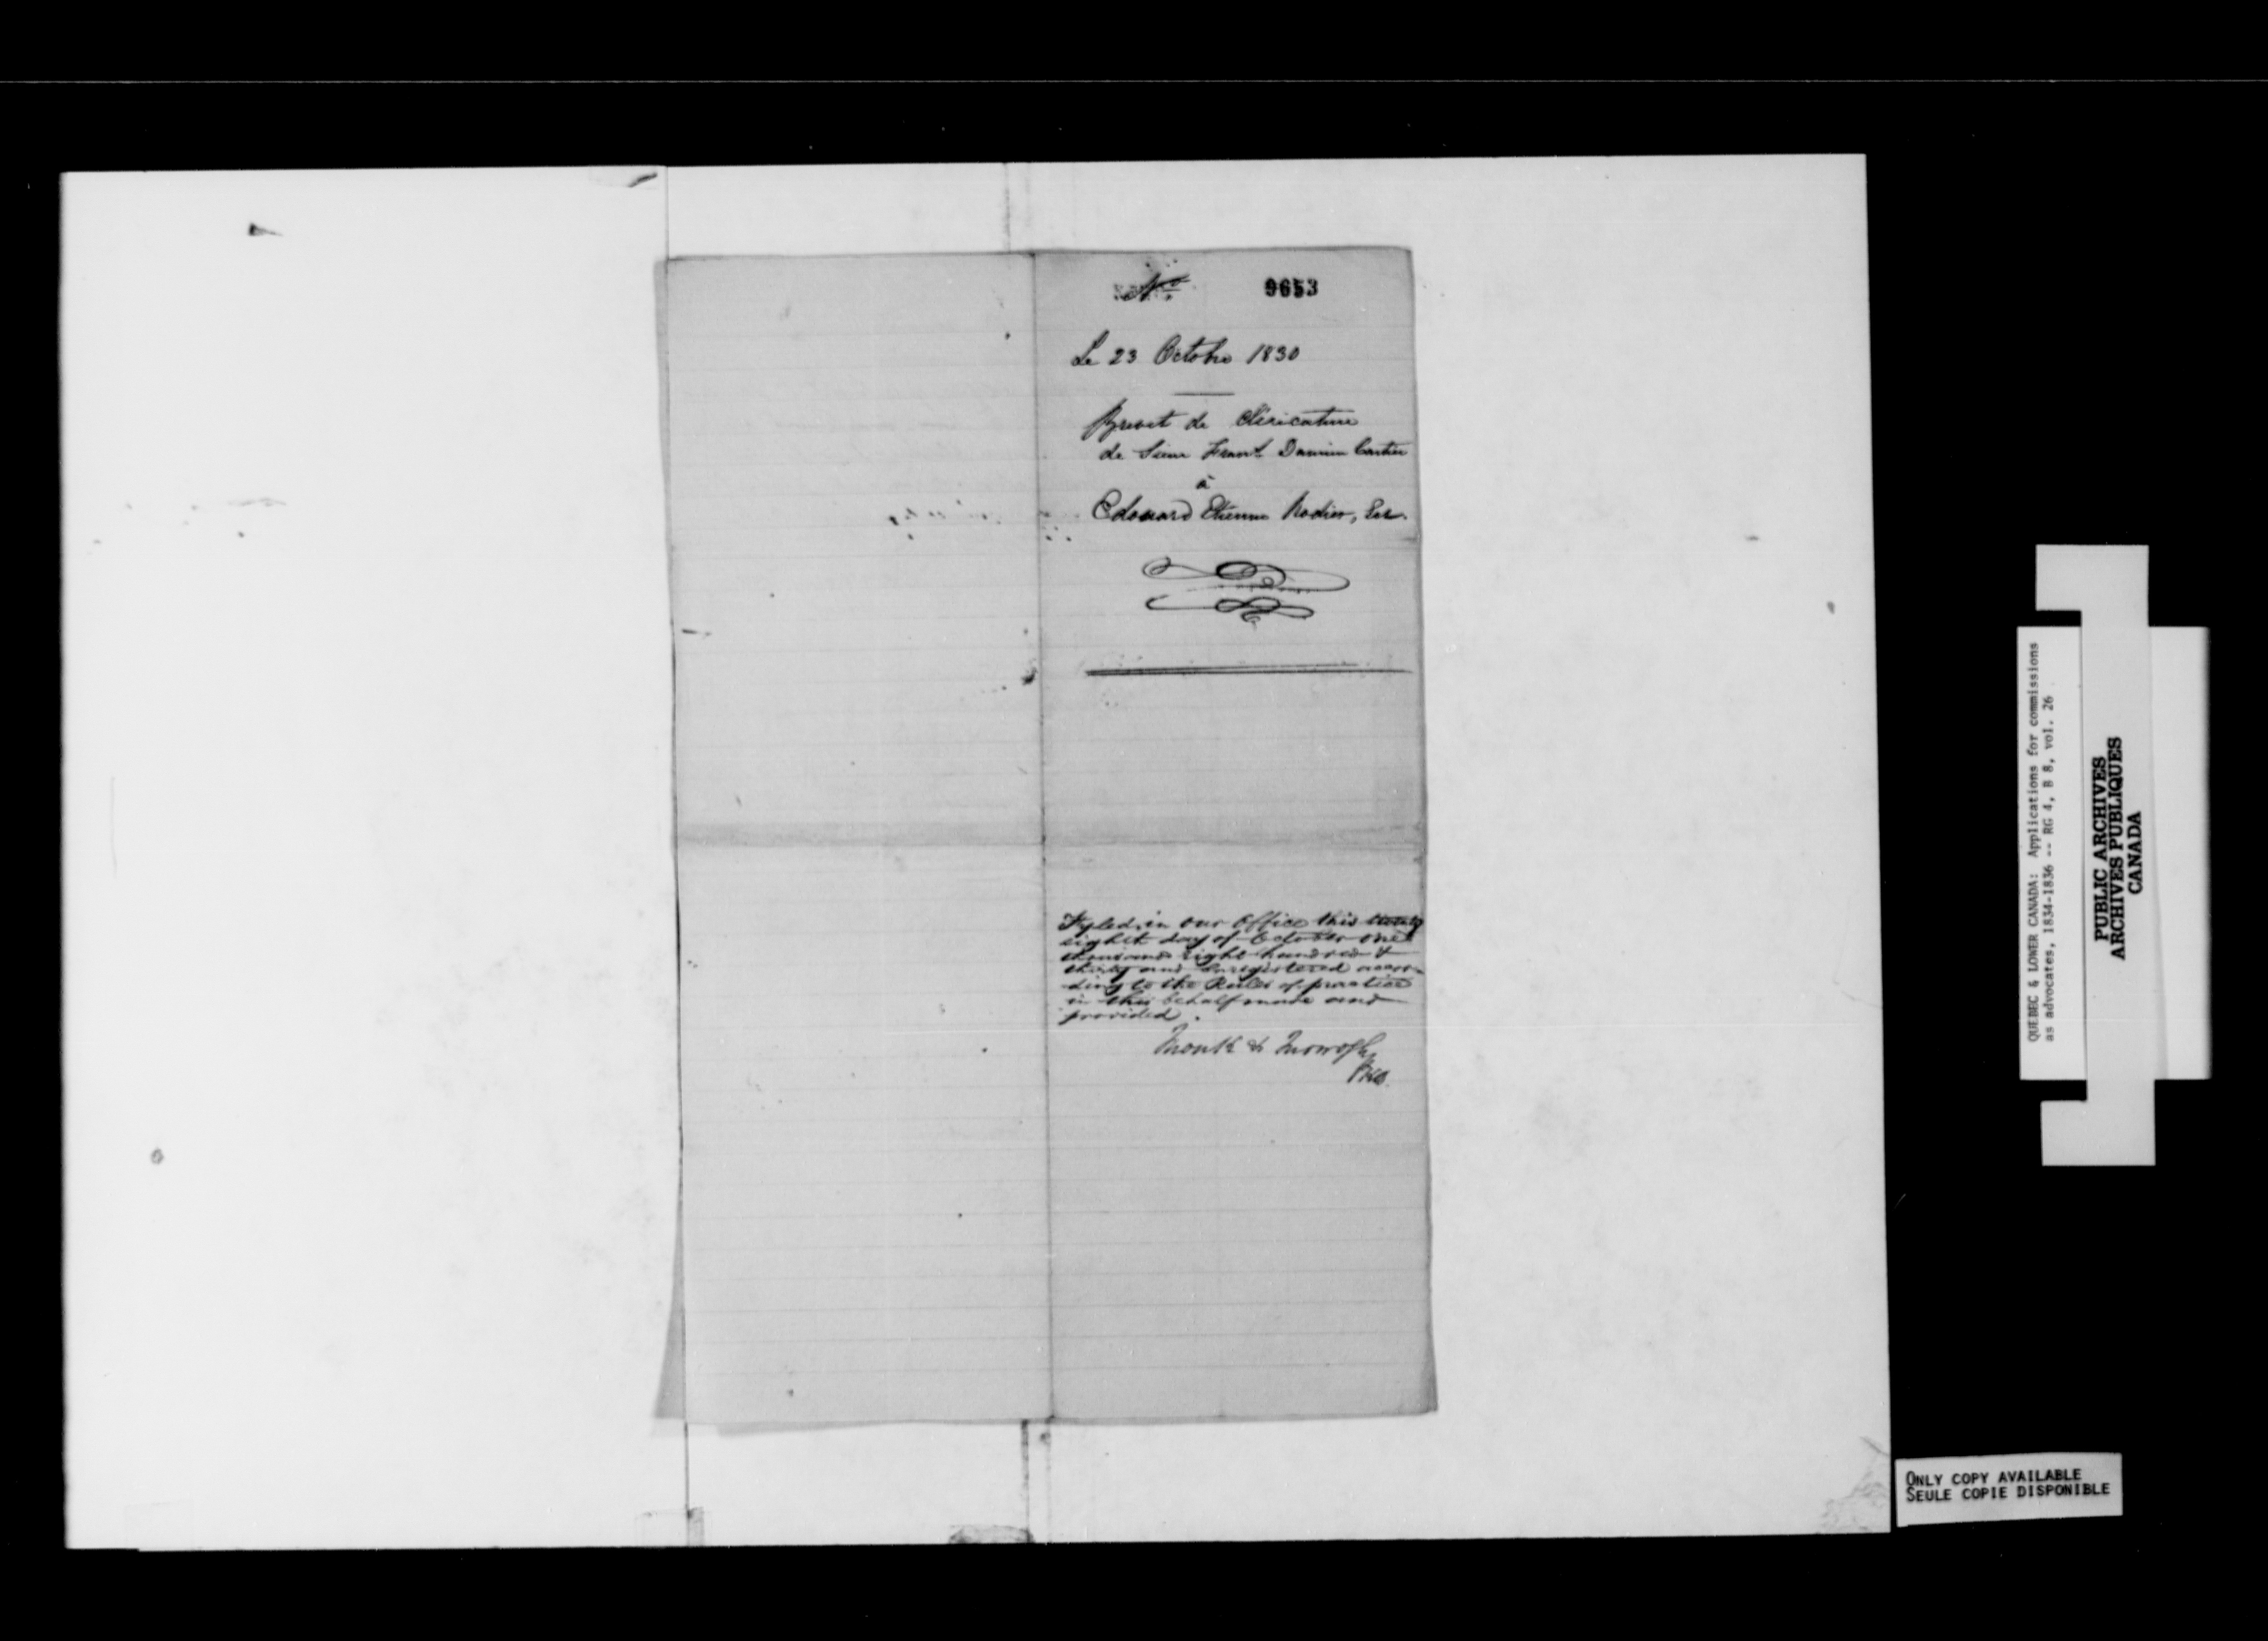 No. 9653
Le 23 Octobre 1830
Brevet de Cléricature
de Sieur Frans. Damien Cartier
à
Edouard Etienne Rodier, Ecr.
Fyled in our Office this twenty
eight day of October one
thousand eight hundred &
thirty and Enregistered accor-
ding to the Rules of practice
in this behalf made and
provided.
Monk & Morrogh
QUEBEC & LOWER CANADA: Applications for commissions
as advocates, 1834-1836 -- RG 4, B 8, vol. 26
PUBLIC ARCHIVES
ARCHIVES PUBLIQUES
CANADA
ONLY COPY AVAILABLE
SEULE COPIE DISPONIBLE